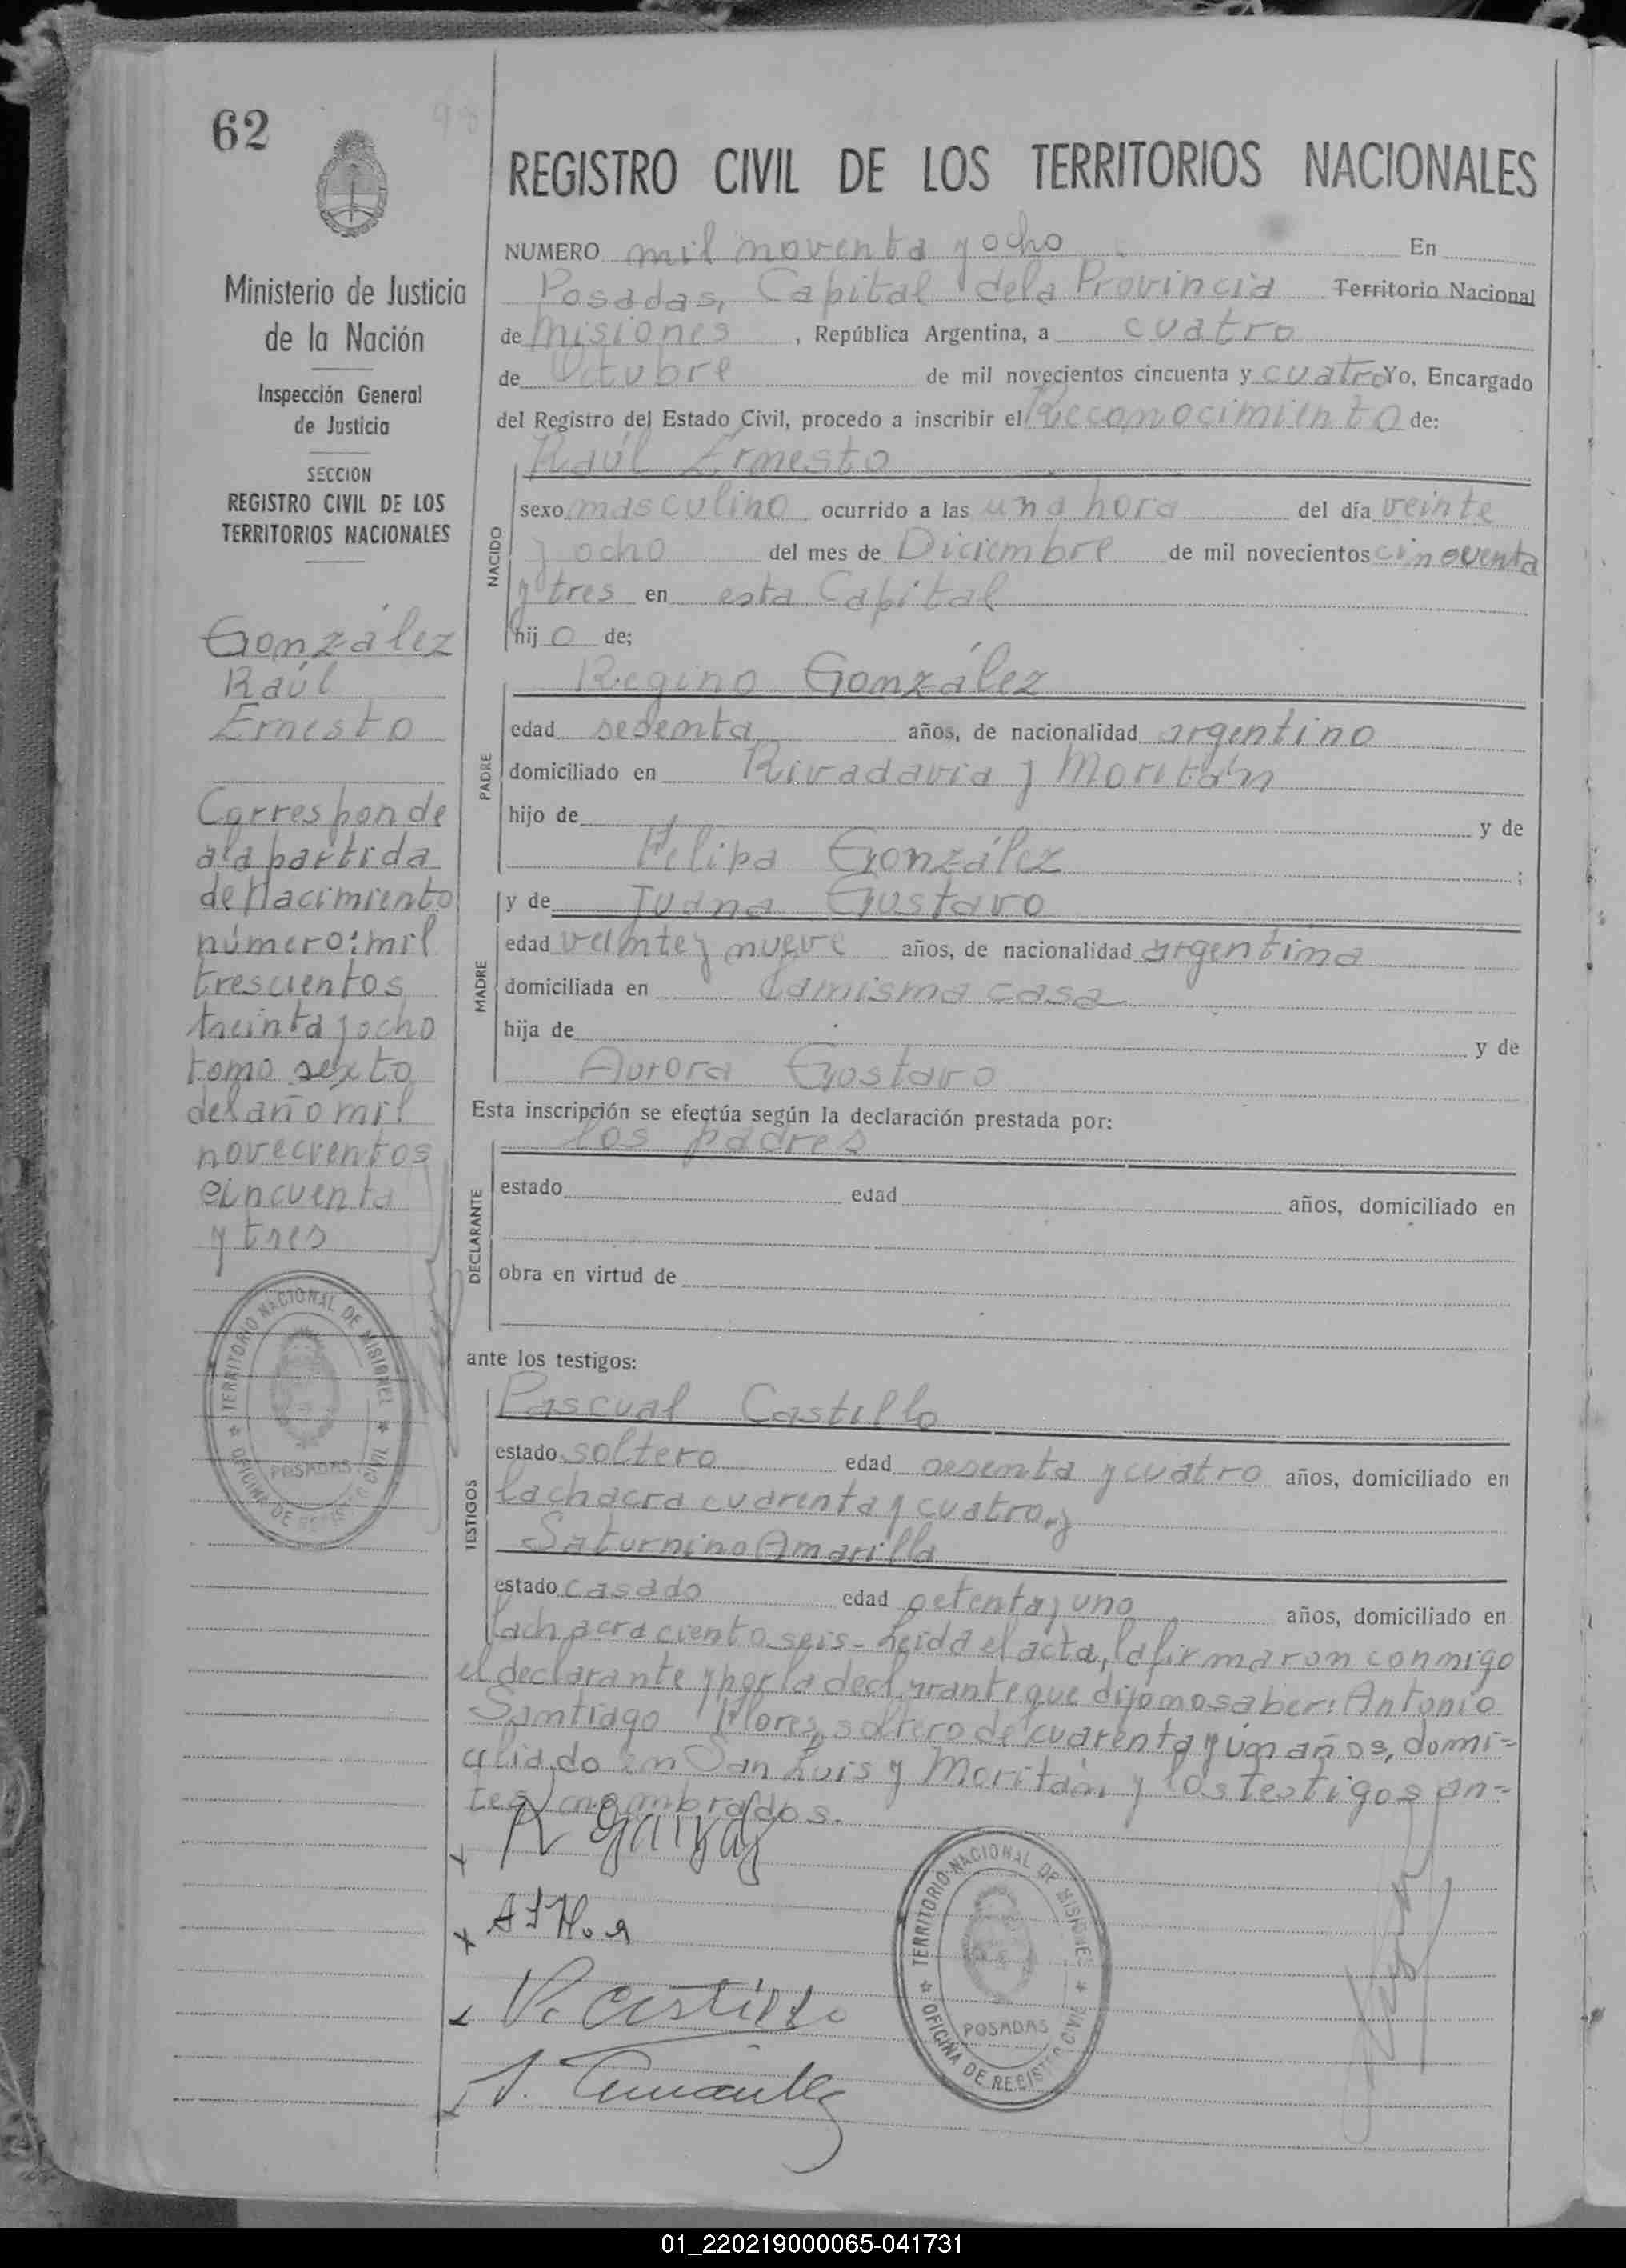 62
REGISTRO CIVIL DE LOS TERRITORIOS NACIONALES
Ministerio de Justicia
de la Nación
Inspección General
de Justicia
SECCION
REGISTRO CIVIL DE LOS
TERRITORIOS NACIONALES
González
Raúl
Ernesto
Corresponde
a la partida
de Nacimiento
número: mil
trescientos
treinta y ocho
tomo sexto
del año mil
novecientos
cincuenta
y tres
TERRITORIO NACIONAL DE MISIONES
OFICINA DE REGISTRO CIVIL
POSADAS
NUMERO mil noventa y ocho En
Posadas, Capital de la Provincia Territorio Nacional
de Misiones, República Argentina, a cuatro
de Octubre de mil novecientos cincuenta y cuatro Yo, Encargado
del Registro del Estado Civil, procedo a inscribir el Reconocimiento de:
Raúl Ernesto
NACIDO
sexo masculino ocurrido a las una hora del día veinte
y ocho del mes de Diciembre de mil novecientos cincuenta
y tres en esta Capital
hijo de;
PADRE
Regino González
edad sesenta años, de nacionalidad argentino
domiciliado en Rivadavia y Moritán
hijo de y de
Felipa González;
MADRE
y de Juana Gustavo
edad veinte y nueve años, de nacionalidad argentina
domiciliada en la misma casa
hija de y de
Aurora Gustavo
Esta inscripción se efectúa según la declaración prestada por:
DECLARANTE
los padres
estado edad años, domiciliado en
obra en virtud de
ante los testigos:
TESTIGOS
Pascual Castillo
estado soltero edad sesenta y cuatro años, domiciliado en
la chacra cuarenta y cuatro, y
Saturnino Amarilla
estado casado edad setenta y uno años, domiciliado en
la chacra ciento seis - Leida el acta, la firmaron conmigo
el declarante y por la declarante que dijo no saber: Antonio
Santiago Flores, soltero de cuarenta y un años, domi-
ciliado en San Luis y Moritán y los testigos an-
tes nombrados.
P. Castillo
TERRITORIO NACIONAL DE MISIONES
OFICINA DE REGISTRO CIVIL
POSADAS
01_220219000065-041731